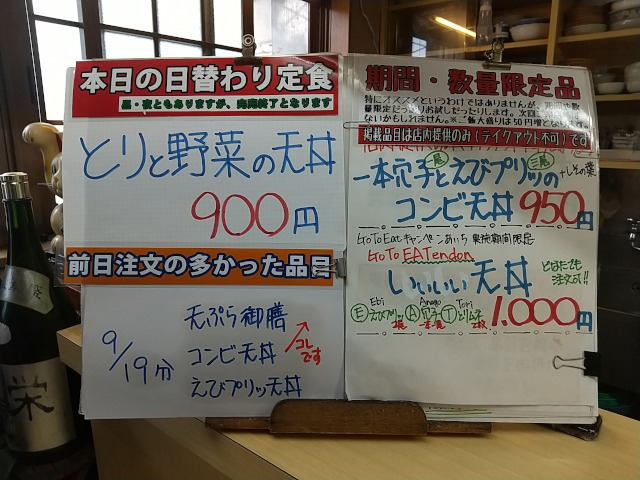 本日の日替わり定食
昼・夜ともありますが、売切終了となります
とりと野菜の天丼
900円
前日注文の多かった品目
9/19分
天ぷら御膳
コンビ天丼
えびプリッ天丼
コレです
期間・数量限定品
特にオススメというわけではありませんが、期間や数
量限定だったりお試しだったりします。次回
ないかもしれません。※ご飯大盛りは50円増となります
掲載品目は店内提供のみ(テイクアウト不可)です
一本穴子とえびプリッの
一尾
三尾
+しその葉
コンビ天丼 950円
GoToEatキャンペーンあいち 実施期間限定
GoTo EATendon
いいいい天丼
とはたでも
注文OK!!
Ebi Anago Tori
E えびプリッ A 穴子 T とりムネ
1,000円
栄